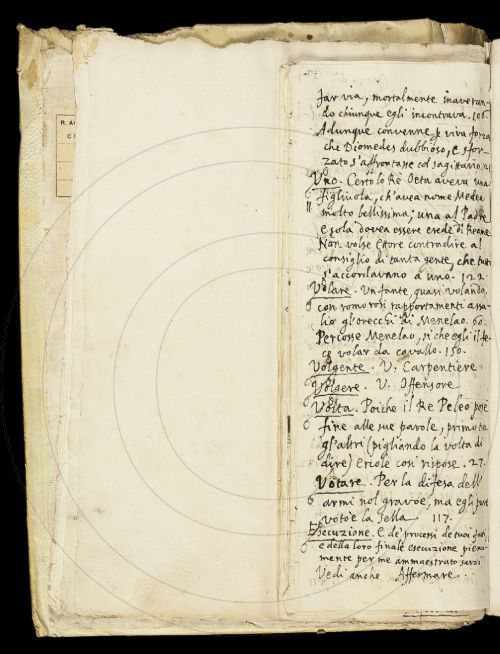 far via, mortalmente inaveran-
do chiunque egli incontrava. 106.
Adunque convenne p viva forza
che Diomedes dubbioso, e sfor-
zato s'affrontasse col sagittario
Uno. Certo lo Re Oeta aveva una
figliuola, ch'avea nome Medea
molto bellissima; una al Padre
e sola dovea essere erede di Reame
Non volse Ettore contradire al
consiglio di tanta gente, che tutti
s'accordavano a uno. 122.
Volare. Un fante, quasi volando,
con romorosi rapportamenti assa-
lio gl'orecchi di Menelao. 60.
Percosse Menelao, si che egli il fe-
ce volar da cavallo. 150.
Volgente. V. Carpentiere
Volgere. V. Offensore
Volta. Poiche il Re Peleo pose
fine alle sue parole, primo tra
gl'altri (pigliando la volta di
dire) Eriole così rispose. 27.
Votare. Per la difesa dell'
armi nol gravoe, ma egli pure
votoe la sella 117.
Esecuzione. E de' processi de tuoi fatti,
e della loro finale esecuzione piena-
mente per me ammaestrato sarai
Vedi anche Affermare.
R. A
C